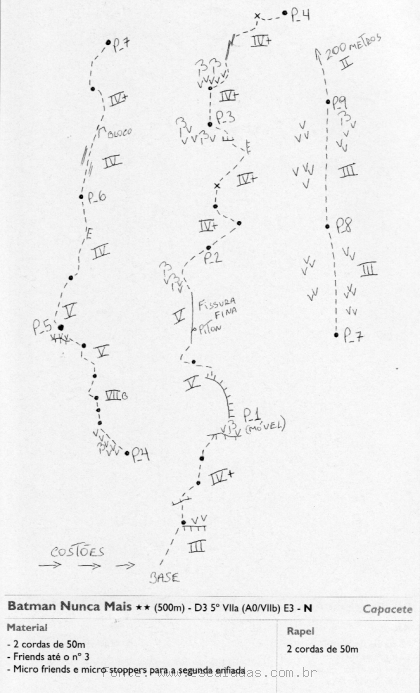 P_7
IV+
BLOCO
IV
P_6
E
IV
V
P_5
V
VIIB
P_4
P_4
IV+
IV+
P_3
E
IV+
IV+
P_2
V
FISSURA
FINA
PITON
V
P_1
(MÓVEL)
IV+
III
BASE
COSTÕES
200 METROS
II
P_9
III
P_8
III
P_7
Batman Nunca Mais ★★ (500m) - D3 5º VIIa (A0/VIIb) E3 - N
Capacete
Material
- 2 cordas de 50m
- Friends até o nº 3
- Micro friends e micro stoppers para a segunda enfiada
Rapel
2 cordas de 50m
Fonte: www.escaladas.com.br